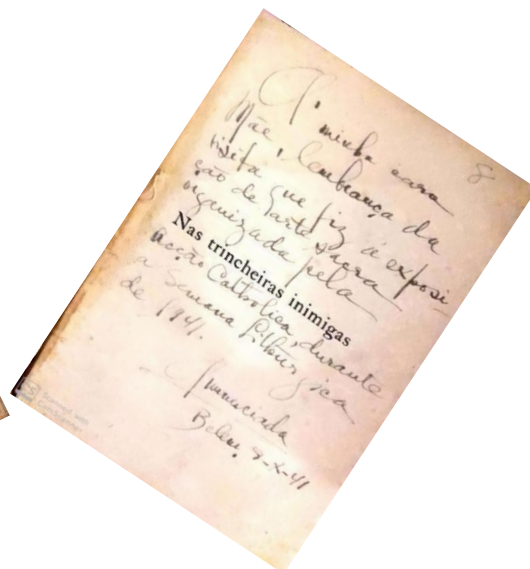 A' minha cara
Mãe, lembrança da
visita que fiz á exposi-
ção de arte sacra
organizada pela
Nas trincheiras inimigas
Acção Catholica, durante
a Semana Liturgica
de 1941.
Annunciada
Belem, 9-X-41
8
Scanned with
CamScanner